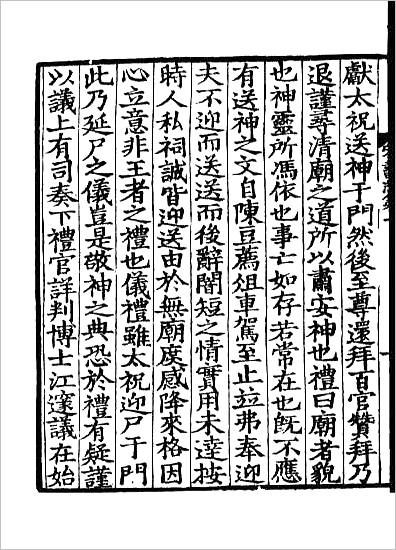 獻太祝送神于門然後至尊還拜百官贊拜乃
退謹尋清廟之道所以肅安神也禮曰廟者貌
也神靈所馮依也事亡如存若常在也旣不應
有送神之文自陳豆薦俎車駕至止並弗奉迎
夫不迎而送送而後辭闇短之情實用未達按
時人私祠誠皆迎送由於無廟庶感降來格因
心立意非王者之禮也儀禮雖太祝迎尸于門
此乃延尸之儀豈是敬神之典恐於禮有疑謹
以議上有司奏下禮官詳判博士江邃議在始